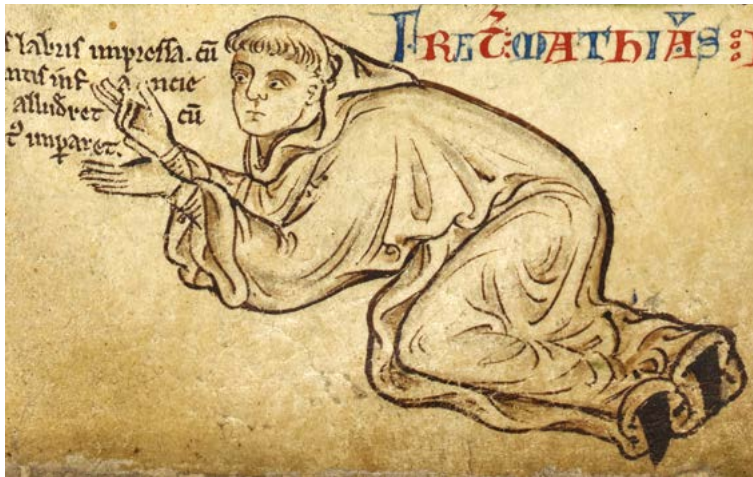 FRAT̄: MATHIAS
s labiis impressa. cū
ntis infancie
alludret cū
imꝑaret.